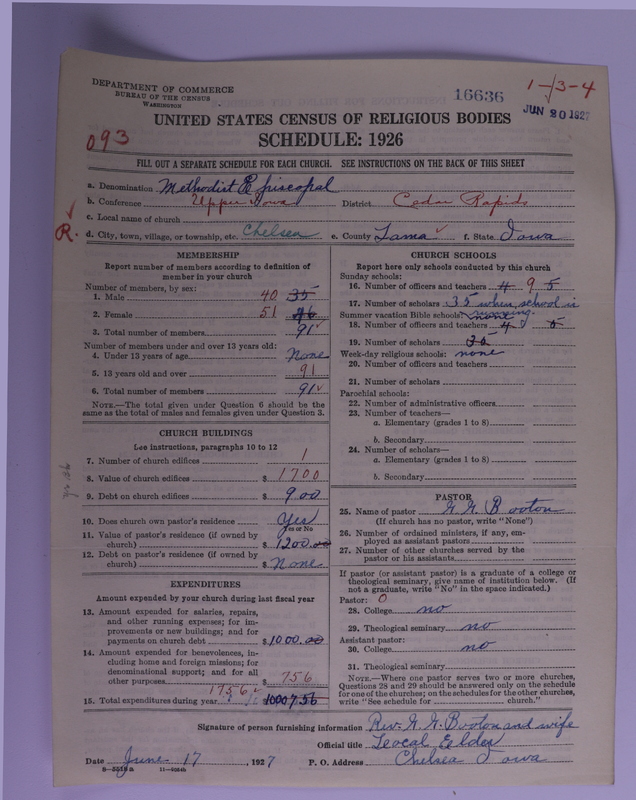 DEPARTMENT OF COMMERCE
BUREAU OF THE CENSUS
WASHINGTON
16636
1-13-4
JUN 20 1927
093
UNITED STATES CENSUS OF RELIGIOUS BODIES
SCHEDULE: 1926
FILL OUT A SEPARATE SCHEDULE FOR EACH CHURCH. SEE INSTRUCTIONS ON THE BACK OF THIS SHEET
a. Denomination Methodist Episcopal
b. Conference Upper Iowa District Cedar Rapids
c. Local name of church
R.
d. City, town, village, or township, etc. Chelsea e. County Tama f. State Iowa
MEMBERSHIP
Report number of members according to definition of
member in your church
Number of members, by sex:
1. Male 40 35
2. Female 51
3. Total number of members 91
Number of members under and over 13 years old:
4. Under 13 years of age None
5. 13 years old and over 91
6. Total number of members 91
NOTE.—The total given under Question 6 should be the
same as the total of males and females given under Question 3.
CHURCH BUILDINGS
See instructions, paragraphs 10 to 12
7. Number of church edifices 1
8. Value of church edifices $ 1700
9. Debt on church edifices $ 900
10. Does church own pastor's residence Yes
Yes or No
11. Value of pastor's residence (if owned by
church) $ 1200.00
12. Debt on pastor's residence (if owned by
church) $ None
EXPENDITURES
Amount expended by your church during last fiscal year
13. Amount expended for salaries, repairs,
and other running expenses; for im-
provements or new buildings; and for
payments on church debt $ 1000.00
14. Amount expended for benevolences, in-
cluding home and foreign missions; for
denominational support; and for all
other purposes 756
1756
15. Total expenditures during year $ 10007.56
CHURCH SCHOOLS
Report here only schools conducted by this church
Sunday schools:
16. Number of officers and teachers 4 9 5
17. Number of scholars 35 when school is
Summer vacation Bible schools:
18. Number of officers and teachers 4 5
19. Number of scholars 35
Week-day religious schools: none
20. Number of officers and teachers
21. Number of scholars
Parochial schools:
22. Number of administrative officers
23. Number of teachers—
a. Elementary (grades 1 to 8)
b. Secondary
24. Number of scholars—
a. Elementary (grades 1 to 8)
b. Secondary
PASTOR
25. Name of pastor G. G. Booton
(If church has no pastor, write "None")
26. Number of ordained ministers, if any, em-
ployed as assistant pastors
27. Number of other churches served by the
pastor or his assistants
If pastor (or assistant pastor) is a graduate of a college or
theological seminary, give name of institution below. (If
not a graduate, write "No" in the space indicated.)
Pastor: 0
28. College no
29. Theological seminary no
Assistant pastor:
30. College no
31. Theological seminary
NOTE.—Where one pastor serves two or more churches,
Questions 28 and 29 should be answered only on the schedule
for one of the churches; on the schedules for the other churches,
write "See schedule for church."
Signature of person furnishing information Rev. G. G. Booton and wife
Official title Leocal Elder
Date June 17, 1927 P. O. Address Chelsea Iowa